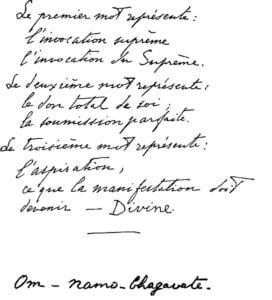 Le premier mot représente :
l'invocation suprême
l'invocation du Suprême.
Le deuxième mot représente :
le don total de soi,
la soumission parfaite.
Le troisième mot représente :
l'aspiration,
ce que la manifestation doit
devenir — Divine
Om - namo - Bhagavate.